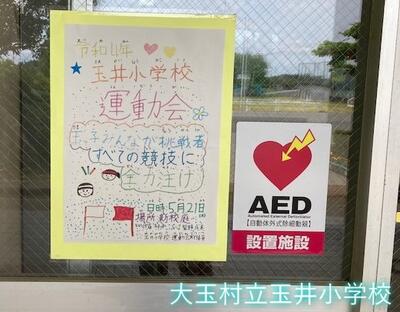 令和4年
玉井小学校
運動会
玉子みんなが挑戦者
すべての競技に
全力注げ
日時5月21日
場所 校庭
AED
Automated External Defibrillator
【自動体外式除細動器】
設置施設
大玉村立玉井小学校